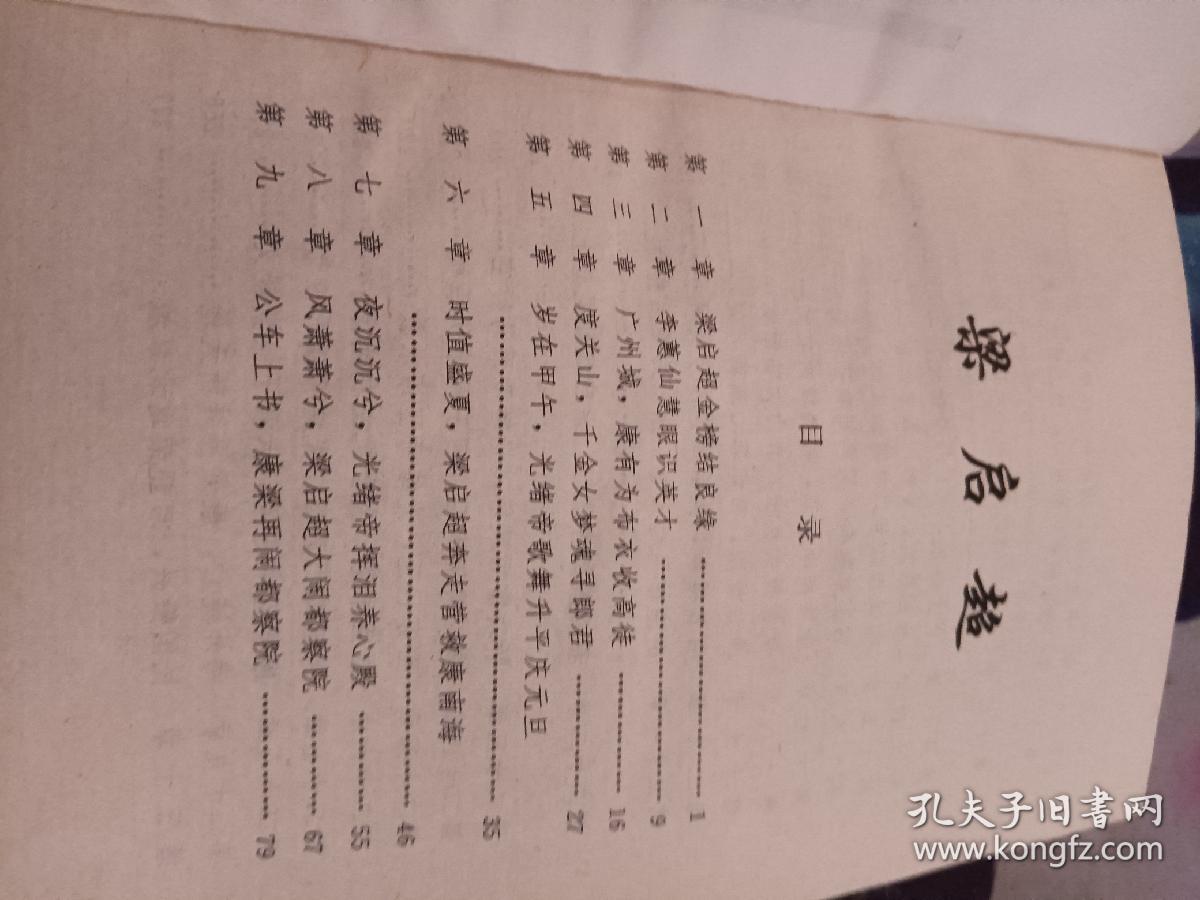 梁启超
目录
第一章 梁启超金榜结良缘 …………………… 1
第二章 李蕙仙慧眼识英才 …………………… 9
第三章 广州城，康有为布衣收高徒 ………… 16
第四章 度关山，千金女梦魂寻郎君 ………… 27
第五章 岁在甲午，光绪帝歌舞升平庆元旦
…………………………………………… 35
第六章 时值盛夏，梁启超奔走营救康南海
…………………………………………… 46
第七章 夜沉沉兮，光绪帝挥泪养心殿 ……… 55
第八章 风萧萧兮，梁启超大闹都察院 ……… 67
第九章 公车上书，康梁再闹都察院 ………… 79
孔夫子旧书网
www.kongfz.com